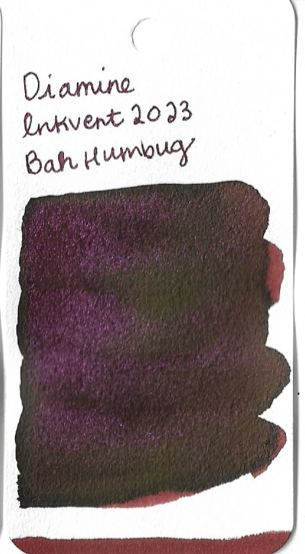 Diamine
Inkvent 2023
Bah Humbug